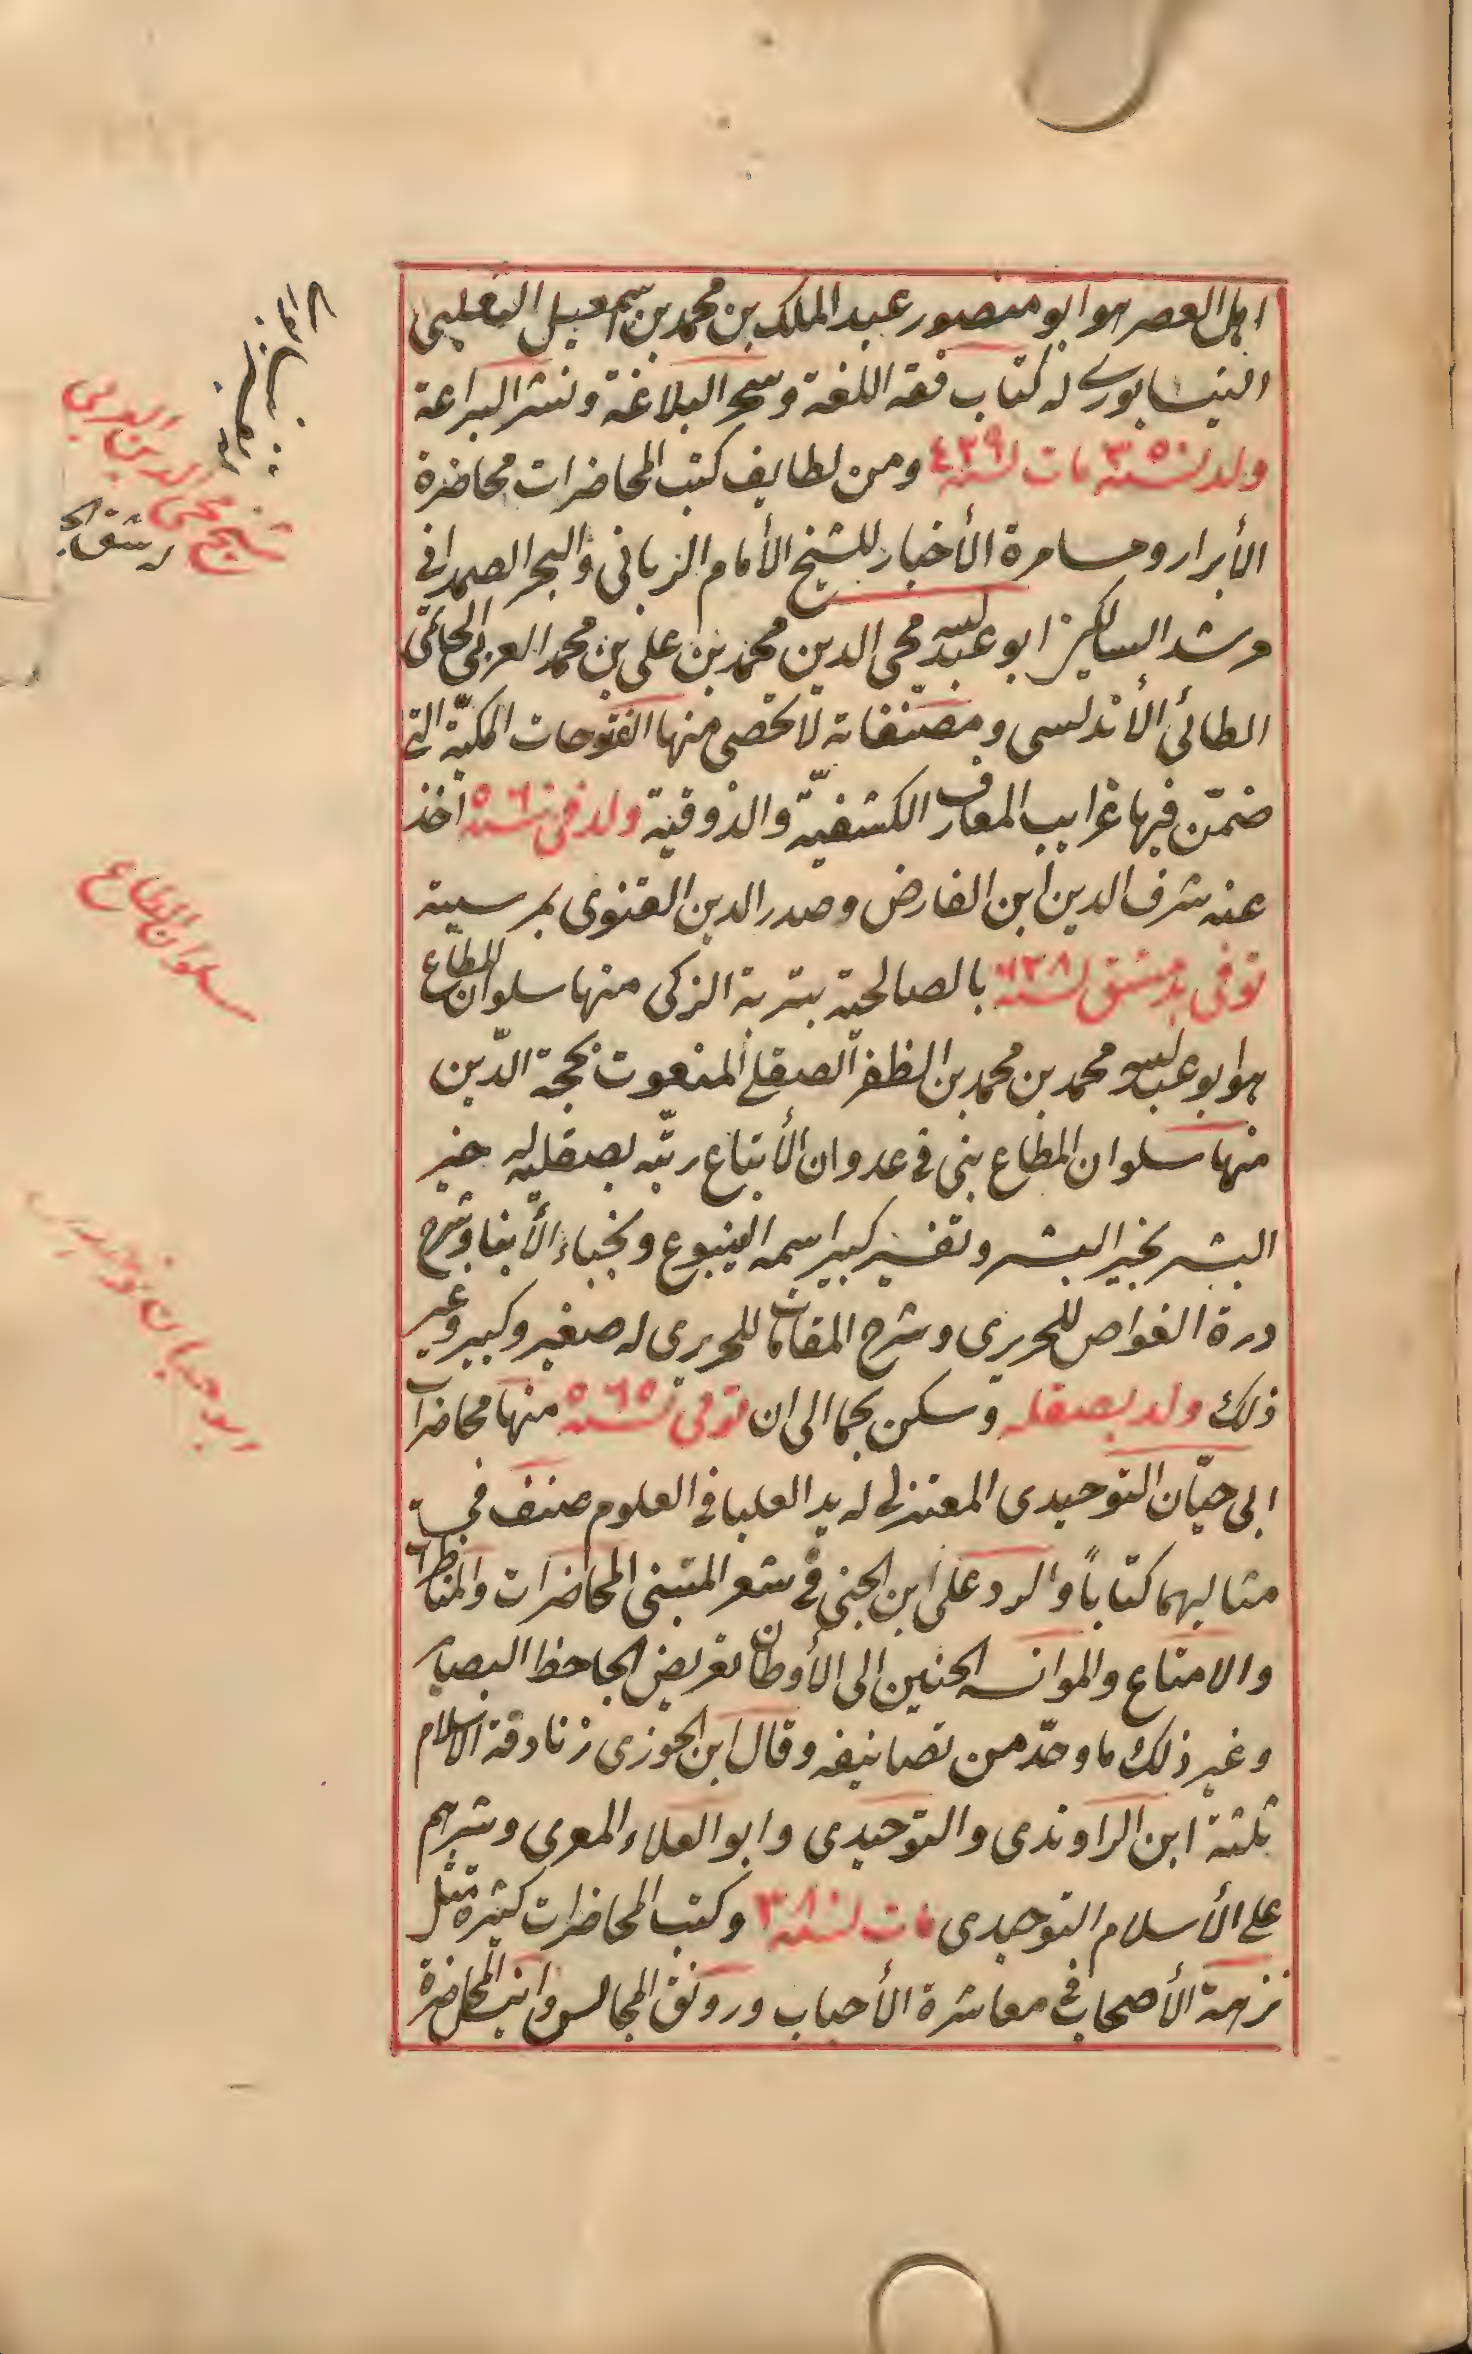 اهل العصر هو ابو منصور عبد الملك بن محمد بن اسمعيل الثعلبي
النيسابوري له كتاب فقه اللغة وسحر البلاغة ونثر البراعة
ولد لسنة ٣٥٠ مات لسنة ٤٢٩ ومن لطايف كتب المحاضرات محاضرة
الأبرار ومسامرة الأخبار للشيخ الأمام الرباني والبحر الصمداني
مرشد السالكين ابو عبد الله محي الدين محمد بن علي بن محمد العربي الحاتمي
الطائي الأندلسي ومصنفاته لا تحصي منها الفتوحات المكيّة التي
ضمّن فيها غرايب المعارف الكشفيّة والذوقية ولد في سنة ٥٦٠ اخذ
عنه شرف الدين ابن الفارض وصدر الدين القنوي بمرسية
توفي بدمشق لسنة ٦٣٨ بالصالحية بتربة الزكي منها سلوان المطاع
هو ابو عبد الله محمد بن محمد بن الظفر الصقلي المنعوت بحجة الدّين
منها سلوان المطاع بني في عدوان الأتباع رتبه بصقليه له خير
البشر بخير البشر وتفسير كبير اسمه الينبوع ونجباء الأبنا وشرح
درة الغواص للحريري وشرح المقامات للحريري له صغير وكبير وغير
ذلك ولد بصقله وسكن بحما الى ان توفي سنة ٥٦٥ منها محاضرات
ابي حيّان التوحيدي المعتزلي له يد العليا في العلوم صنف في
مثالبهما كتاباً والرد على ابن الجني في شعر المتنبي المحاضرات والمناظرات
والامتاع والموانسه الحنين الى الأوطان تقريض الجاحظ البصاير
وغير ذلك ما وحّد من تصانيفه وقال ابن الجوزي زنادقة الاسلام
ثلثة ابن الراوندي والتوحيدي وابو العلاء المعري وشرهم
علي الأسلام التوحيدي مات لسنة ٣٨٠ وكتب المحاضرات كثيرة مثل
نزهة الأصحاب في معاشرة الأحباب ورونق المجالس وانيس المحاضرة
شيخ محي الدين العربي
سلوان المطاع
ابو حيان توحيدي